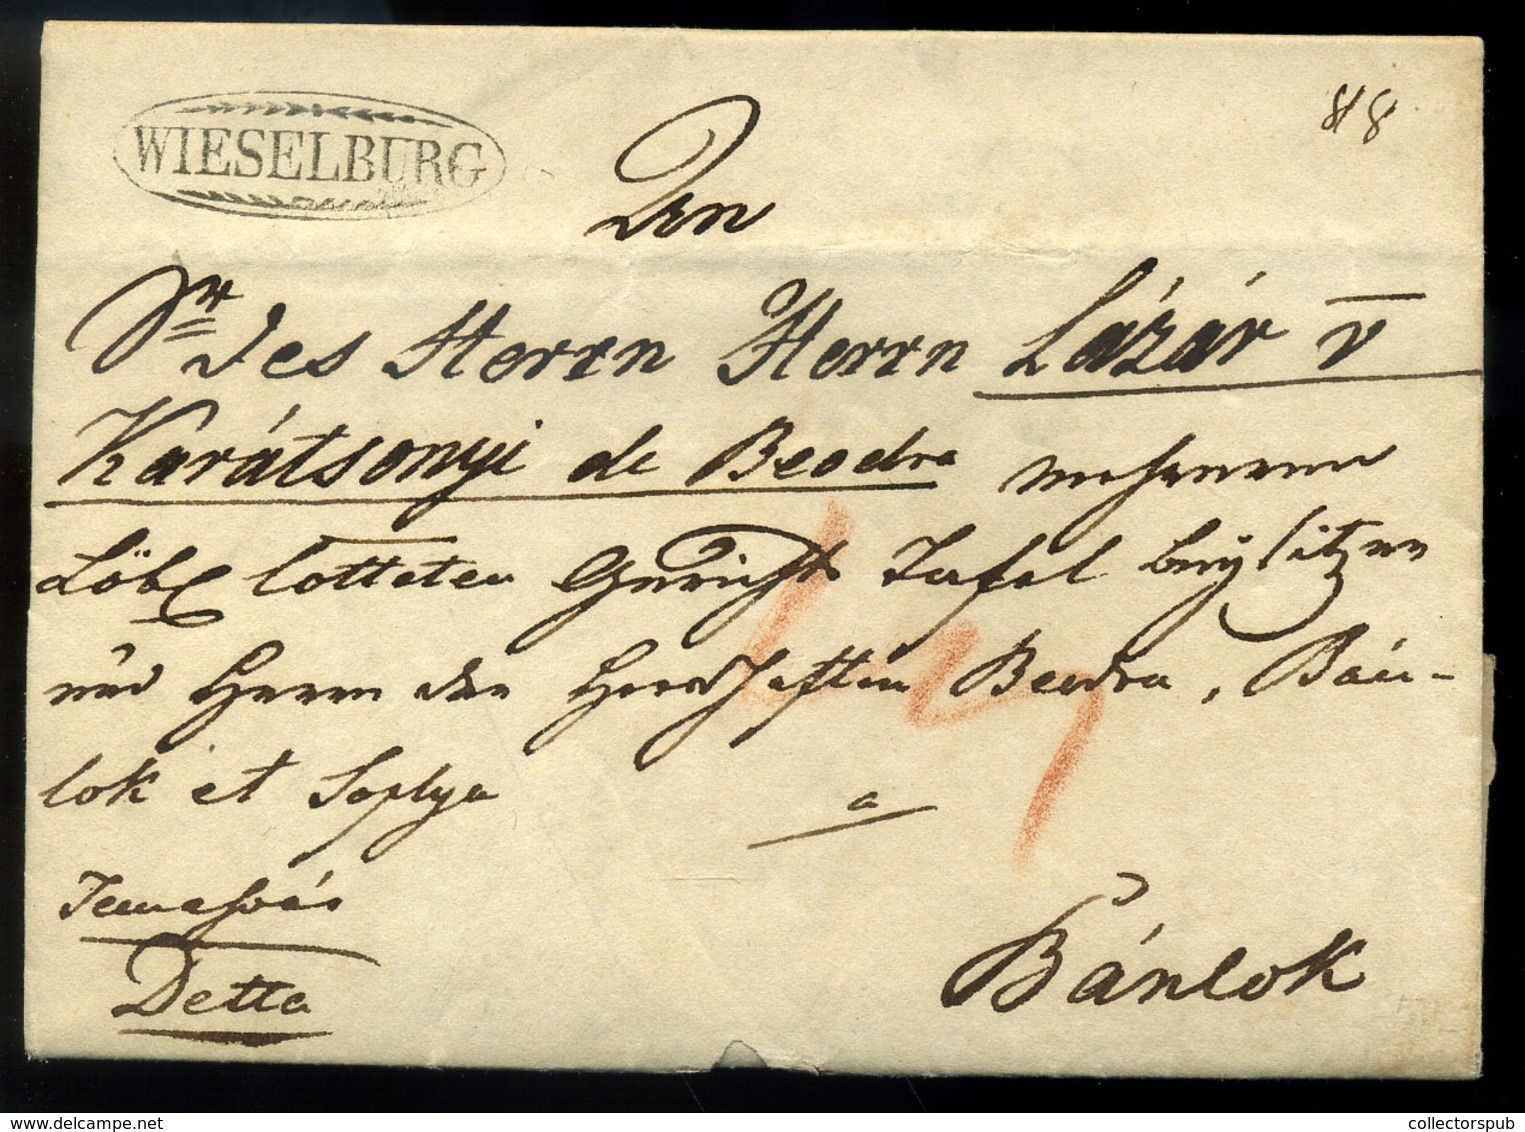 WIESELBURG
Den
Sr des Herrn Herrn Lázár v
Karátsonyi de Beodra mehrerer
Löbl Gerichts Tafel beysitzer
und Herrn der Herrschaften Beodra, Bán-
lok et Soplya
a
Temesvár
Detta
Bánlok
collectorspub.com